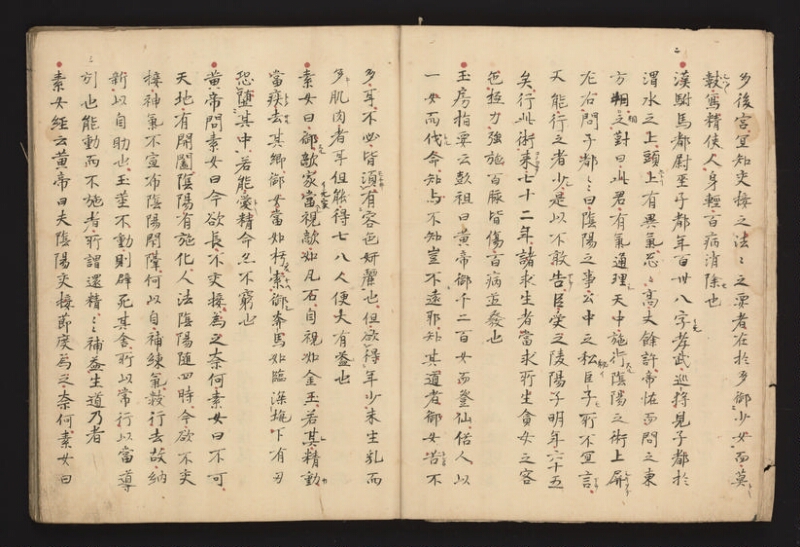 多後宮宜知交接之法〻之要者在於多御少女而莫
數寫精使人身輕百病消除也
漢駙馬都尉巫子都年百卅八字孝武巡狩見子都於
渭水之上頭上有異氣忩〻高丈餘許帝怪而問之東
方朔之對曰此君有氣通理天中施行陰陽之術上屏
左右問子都〻曰陰陽之事公中之私臣子所不宜言
又能行之者少是以不敢告臣受之陵陽子明年六十五
矣行此術來七十二年諸求生者當求所生貪女之容
色極力強施百脉皆傷百病並發也
玉房指要云彭祖曰黄帝御千二百女而登仙俗人以
一女而伐命知与不知豈不遠耶知其道者御女苦不
多耳不必皆湏有容色妍麗也但欲得年少未生乳而
多肌肉者耳但能得七八人便大有益也
素女曰御敵家當視敵如凡石自視如金玉若其精動
當疾去其郷御女當如朽索御奔馬如臨深坑下有刃
恐墮其中若能愛精命亦不窮也
黄帝問素女曰今欲長不交接爲之奈何素女曰不可
天地有開闔陰陽有施化人法陰陽隨四時今欲不交
接神氣不宣布陰陽閇隔何以自補練氣數行去故納
新以自助也玉莖不動則辟死其舍所以常行以當導
引也能動而不施者所謂還精〻〻補益生道乃著
素女經云黄帝曰夫陰陽交接節度爲之奈何素女曰